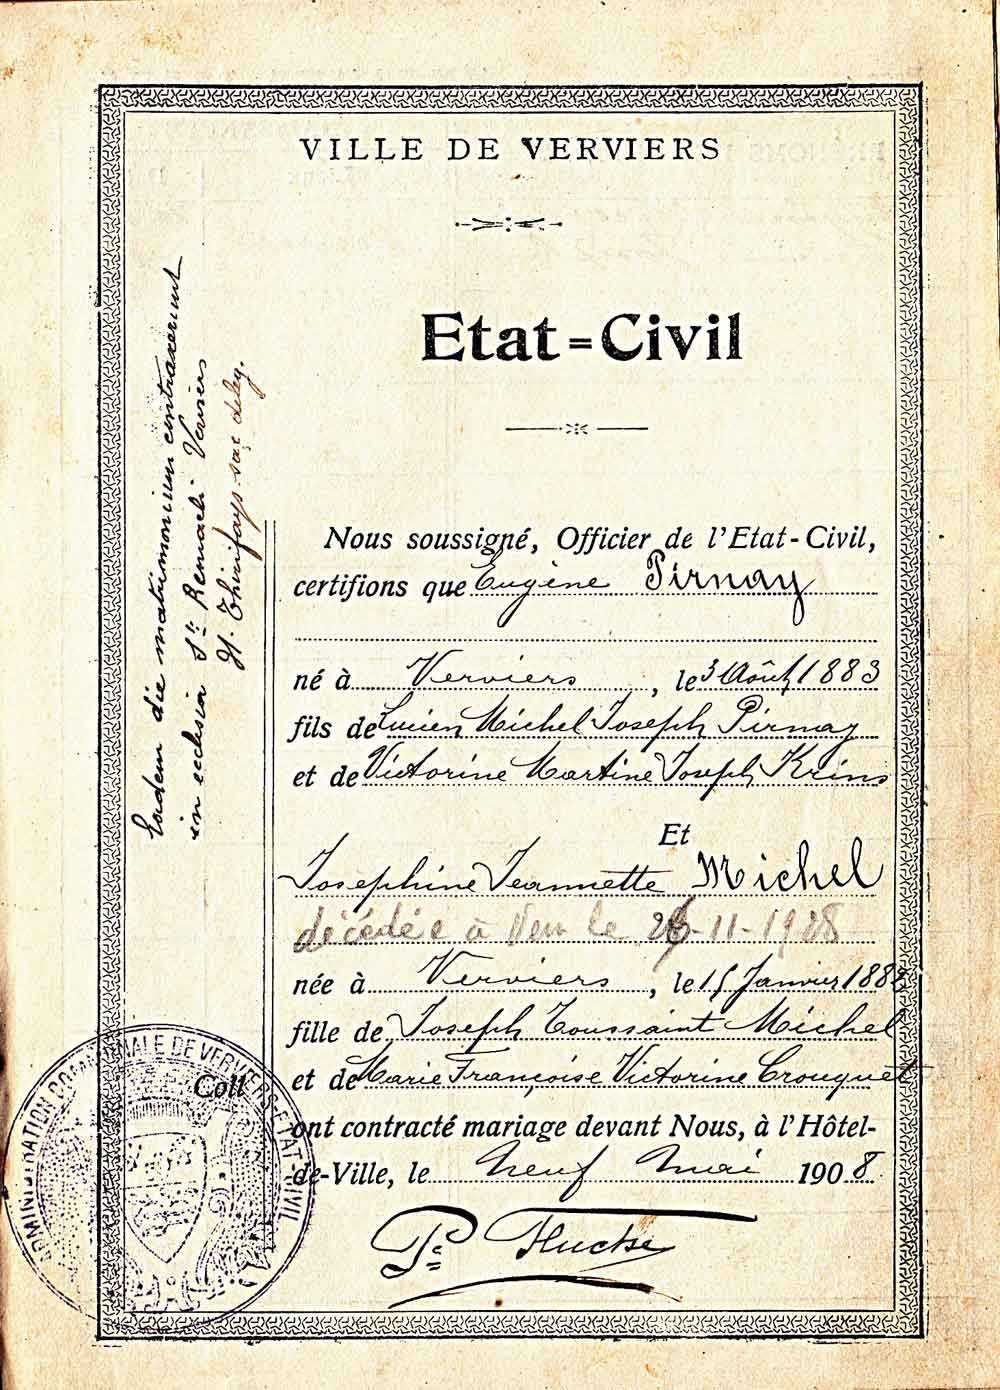 VILLE DE VERVIERS
Etat=Civil
Eadem die matrimonium contraxerunt
in ecclesia Sti Remacli Verviers
Nous soussigné, Officier de l'Etat-Civil,
certifions que Eugène Pirnay
né à Verviers, le 3 Août 1883
fils de Lucien Michel Joseph Pirnay
et de Victorine Martine Joseph Krins
Et
Josephine Jeannette Michel
décédée à le 26-11-1928
née à Verviers, le 15 Janvier 1882
fille de Joseph Toussaint Michel
et de Marie Françoise Victorine Crouquet
Coll
ont contracté mariage devant Nous, à l'Hôtel-
de-Ville, le neuf mai 1908
ADMINISTRATION COMMUNALE DE VERVIERS-ETAT-CIVIL